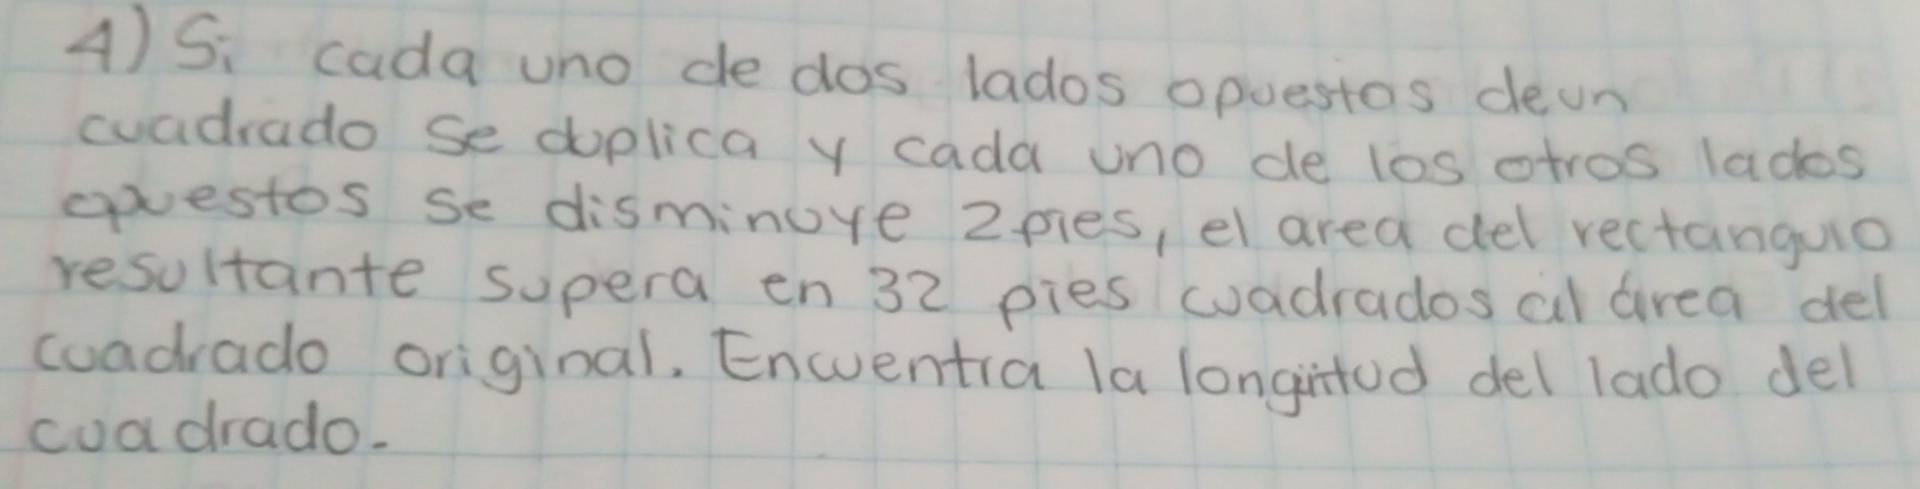 4) Si cada uno de dos lados opuestos de un
cuadrado se duplica y cada uno de los otros lados
opuestos se disminuye 2 pies, el area del rectangulo
resultante supera en 32 pies cuadrados al área del
cuadrado original. Encuentra la longitud del lado del
cuadrado.